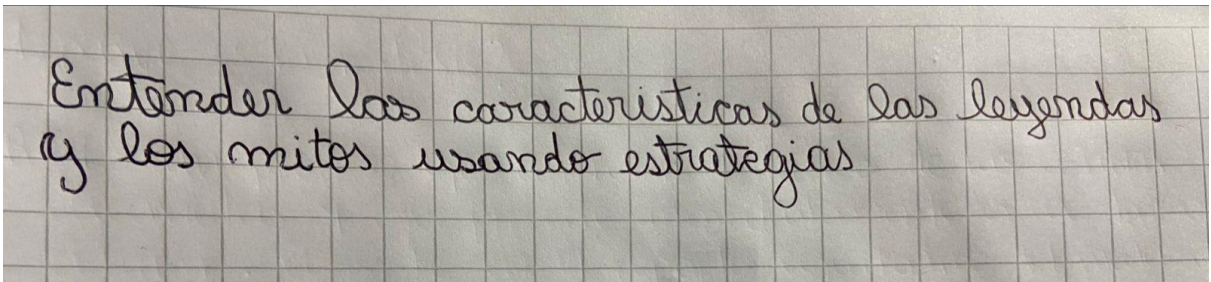 Entender las caracteristicas de las leyendas
y los mitos usando estrategias